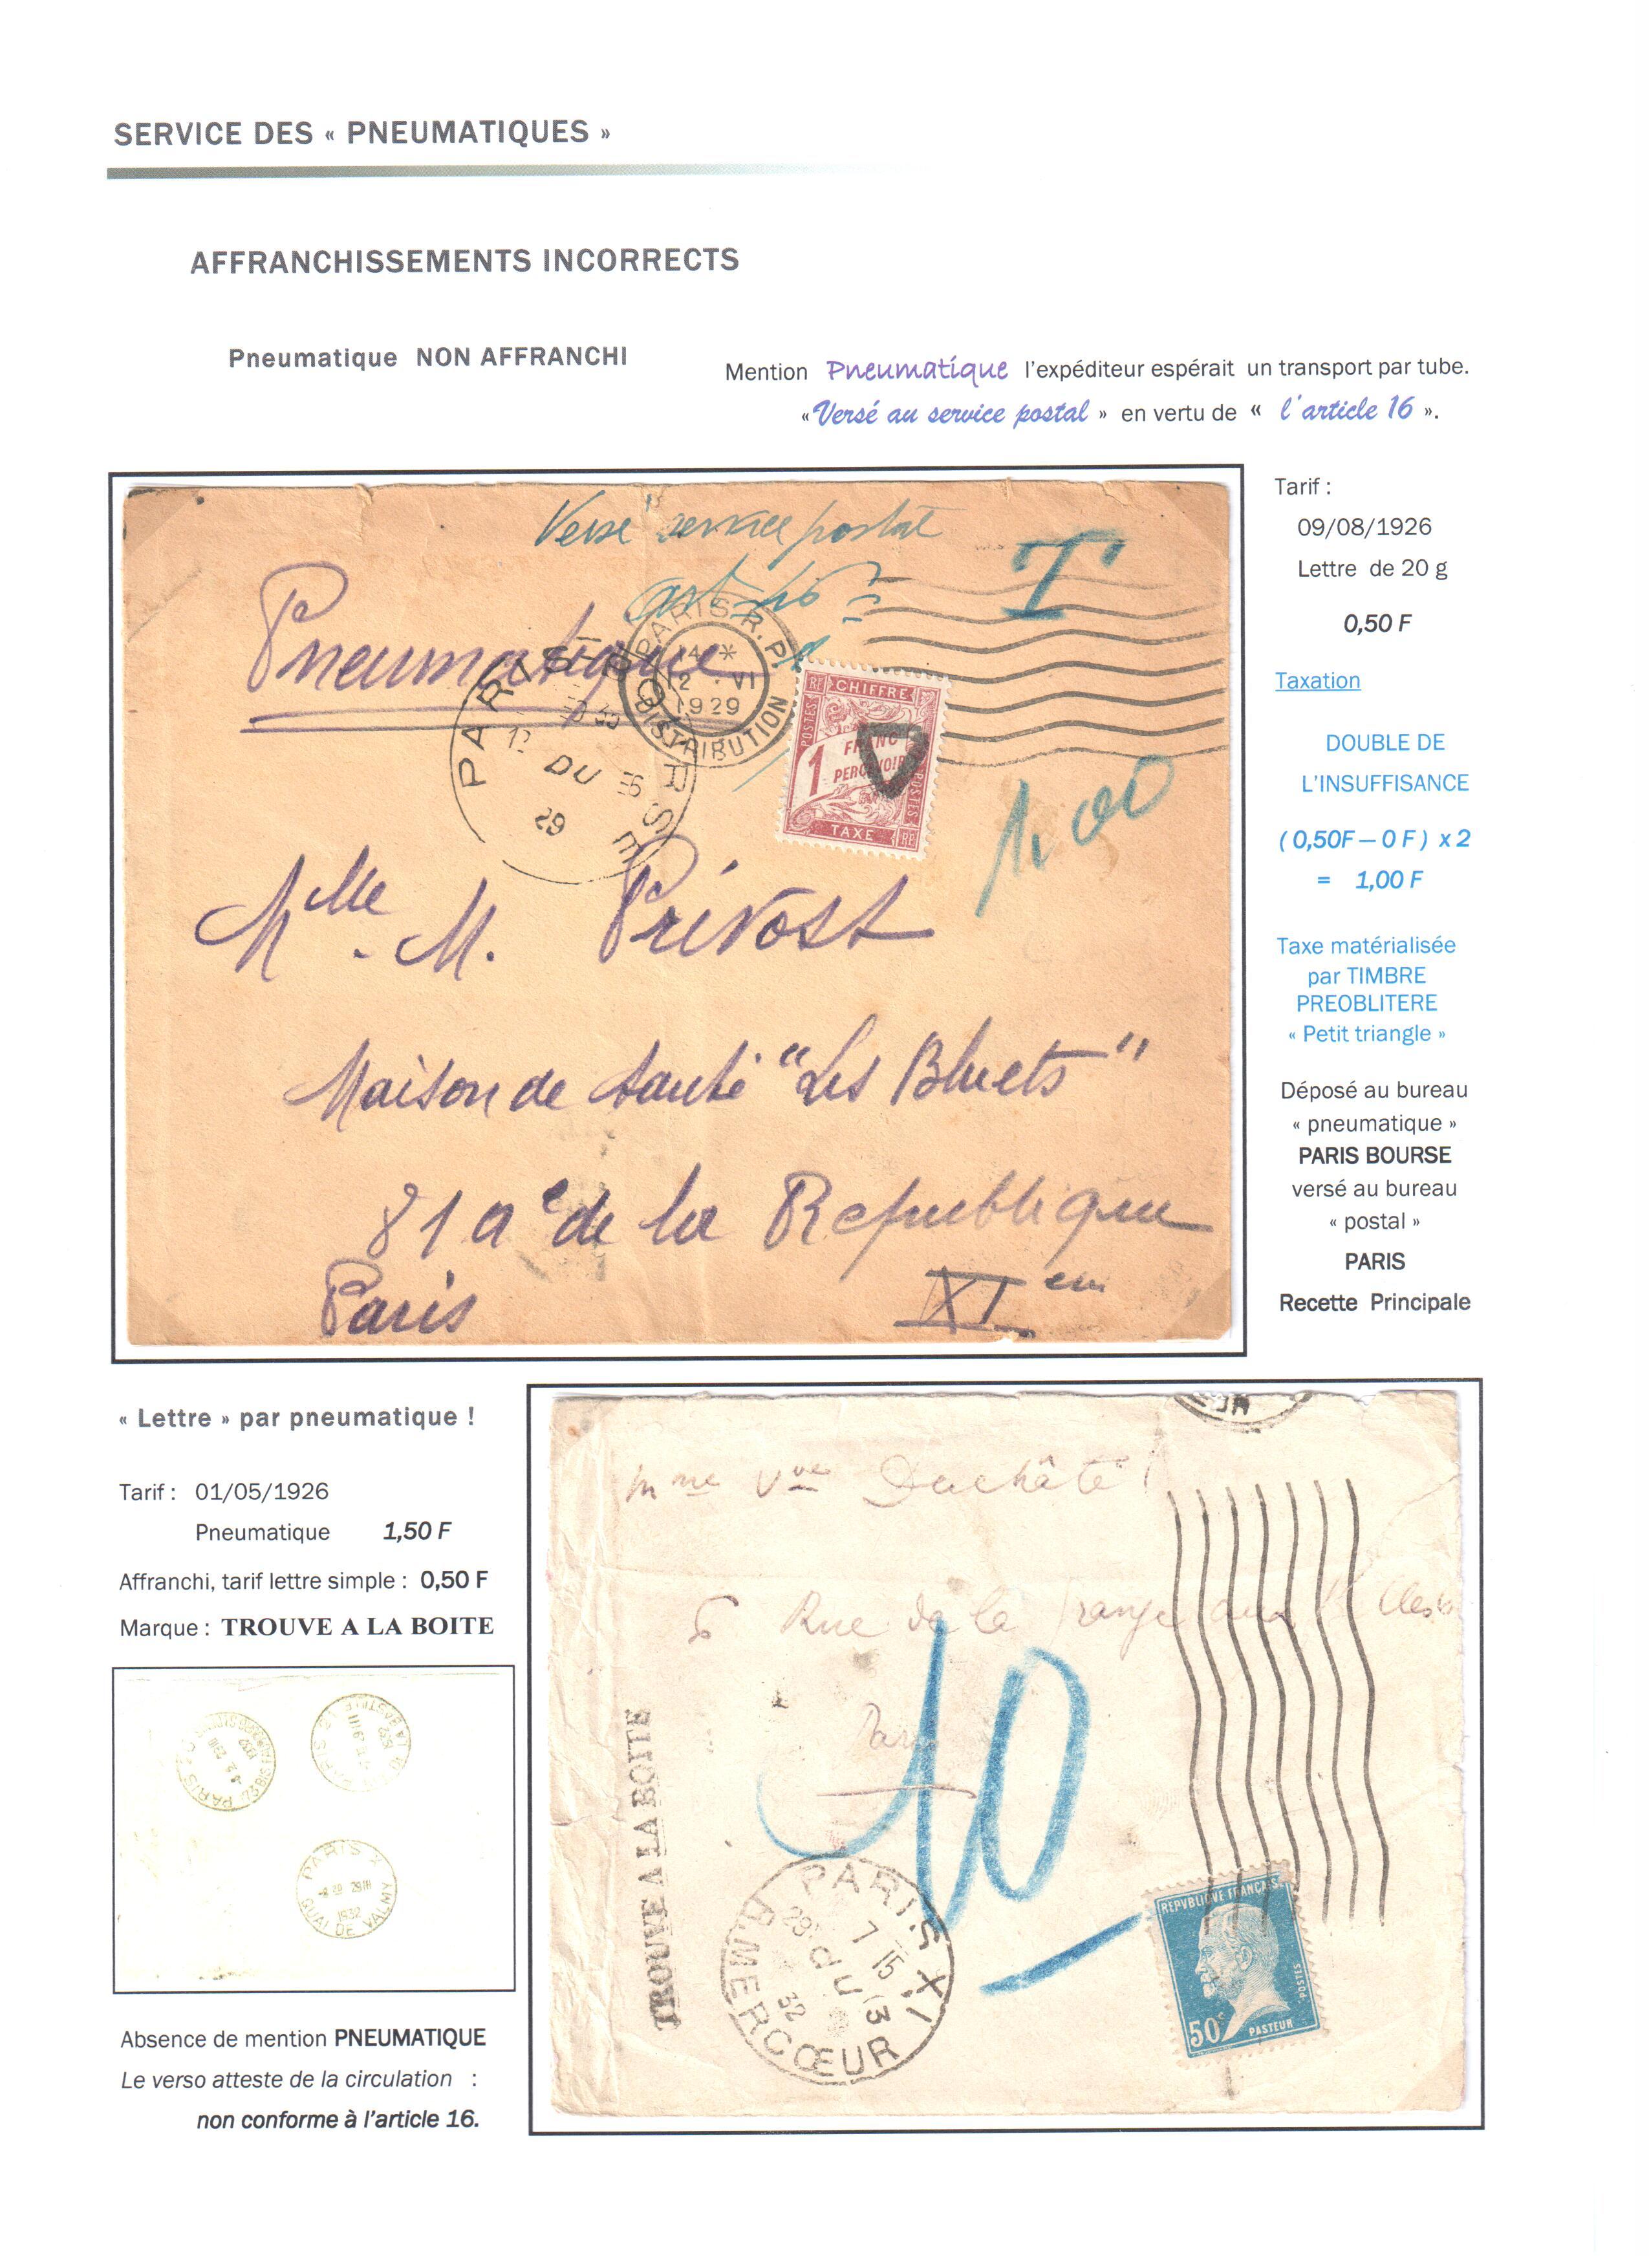 SERVICE DES « PNEUMATIQUES »
AFFRANCHISSEMENTS INCORRECTS
Pneumatique NON AFFRANCHI
Mention Pneumatique l'expéditeur espérait un transport par tube.
« Versé au service postal » en vertu de « l'article 16 ».
Versé service postal
art 16
T
Pneumatique
PARIS R.P.
14 *
12 VI
1929
DISTRIBUTION
PARIS
BOURSE
12 DU 6
29
CHIFFRE
POSTES
1 FRANC
PERCEVOIR
POSTES
TAXE
RF
1,00
Mlle. M. Prévost
Maison de Santé "Les Bluets"
81 ae de la Republique
Paris XIem
Tarif :
09/08/1926
Lettre de 20 g
0,50 F
Taxation
DOUBLE DE
L'INSUFFISANCE
( 0,50F – 0 F ) x 2
= 1,00 F
Taxe matérialisée
par TIMBRE
PREOBLITERE
« Petit triangle »
Déposé au bureau
« pneumatique »
PARIS BOURSE
versé au bureau
« postal »
PARIS
Recette Principale
« Lettre » par pneumatique !
Tarif : 01/05/1926
Pneumatique 1,50 F
Affranchi, tarif lettre simple : 0,50 F
Marque : TROUVE A LA BOITE
PARIS X
1932
QUAI DE VALMY
Absence de mention PNEUMATIQUE
Le verso atteste de la circulation :
non conforme à l'article 16.
Mme Vve Duchâte
6 Rue de la Grange aux
Paris
10
TROUVE A LA BOITE
PARIS XI
7 15
29 DU 3
32
R. MERCŒUR
REPVBLIQVE FRANÇAISE
POSTES
50c PASTEUR